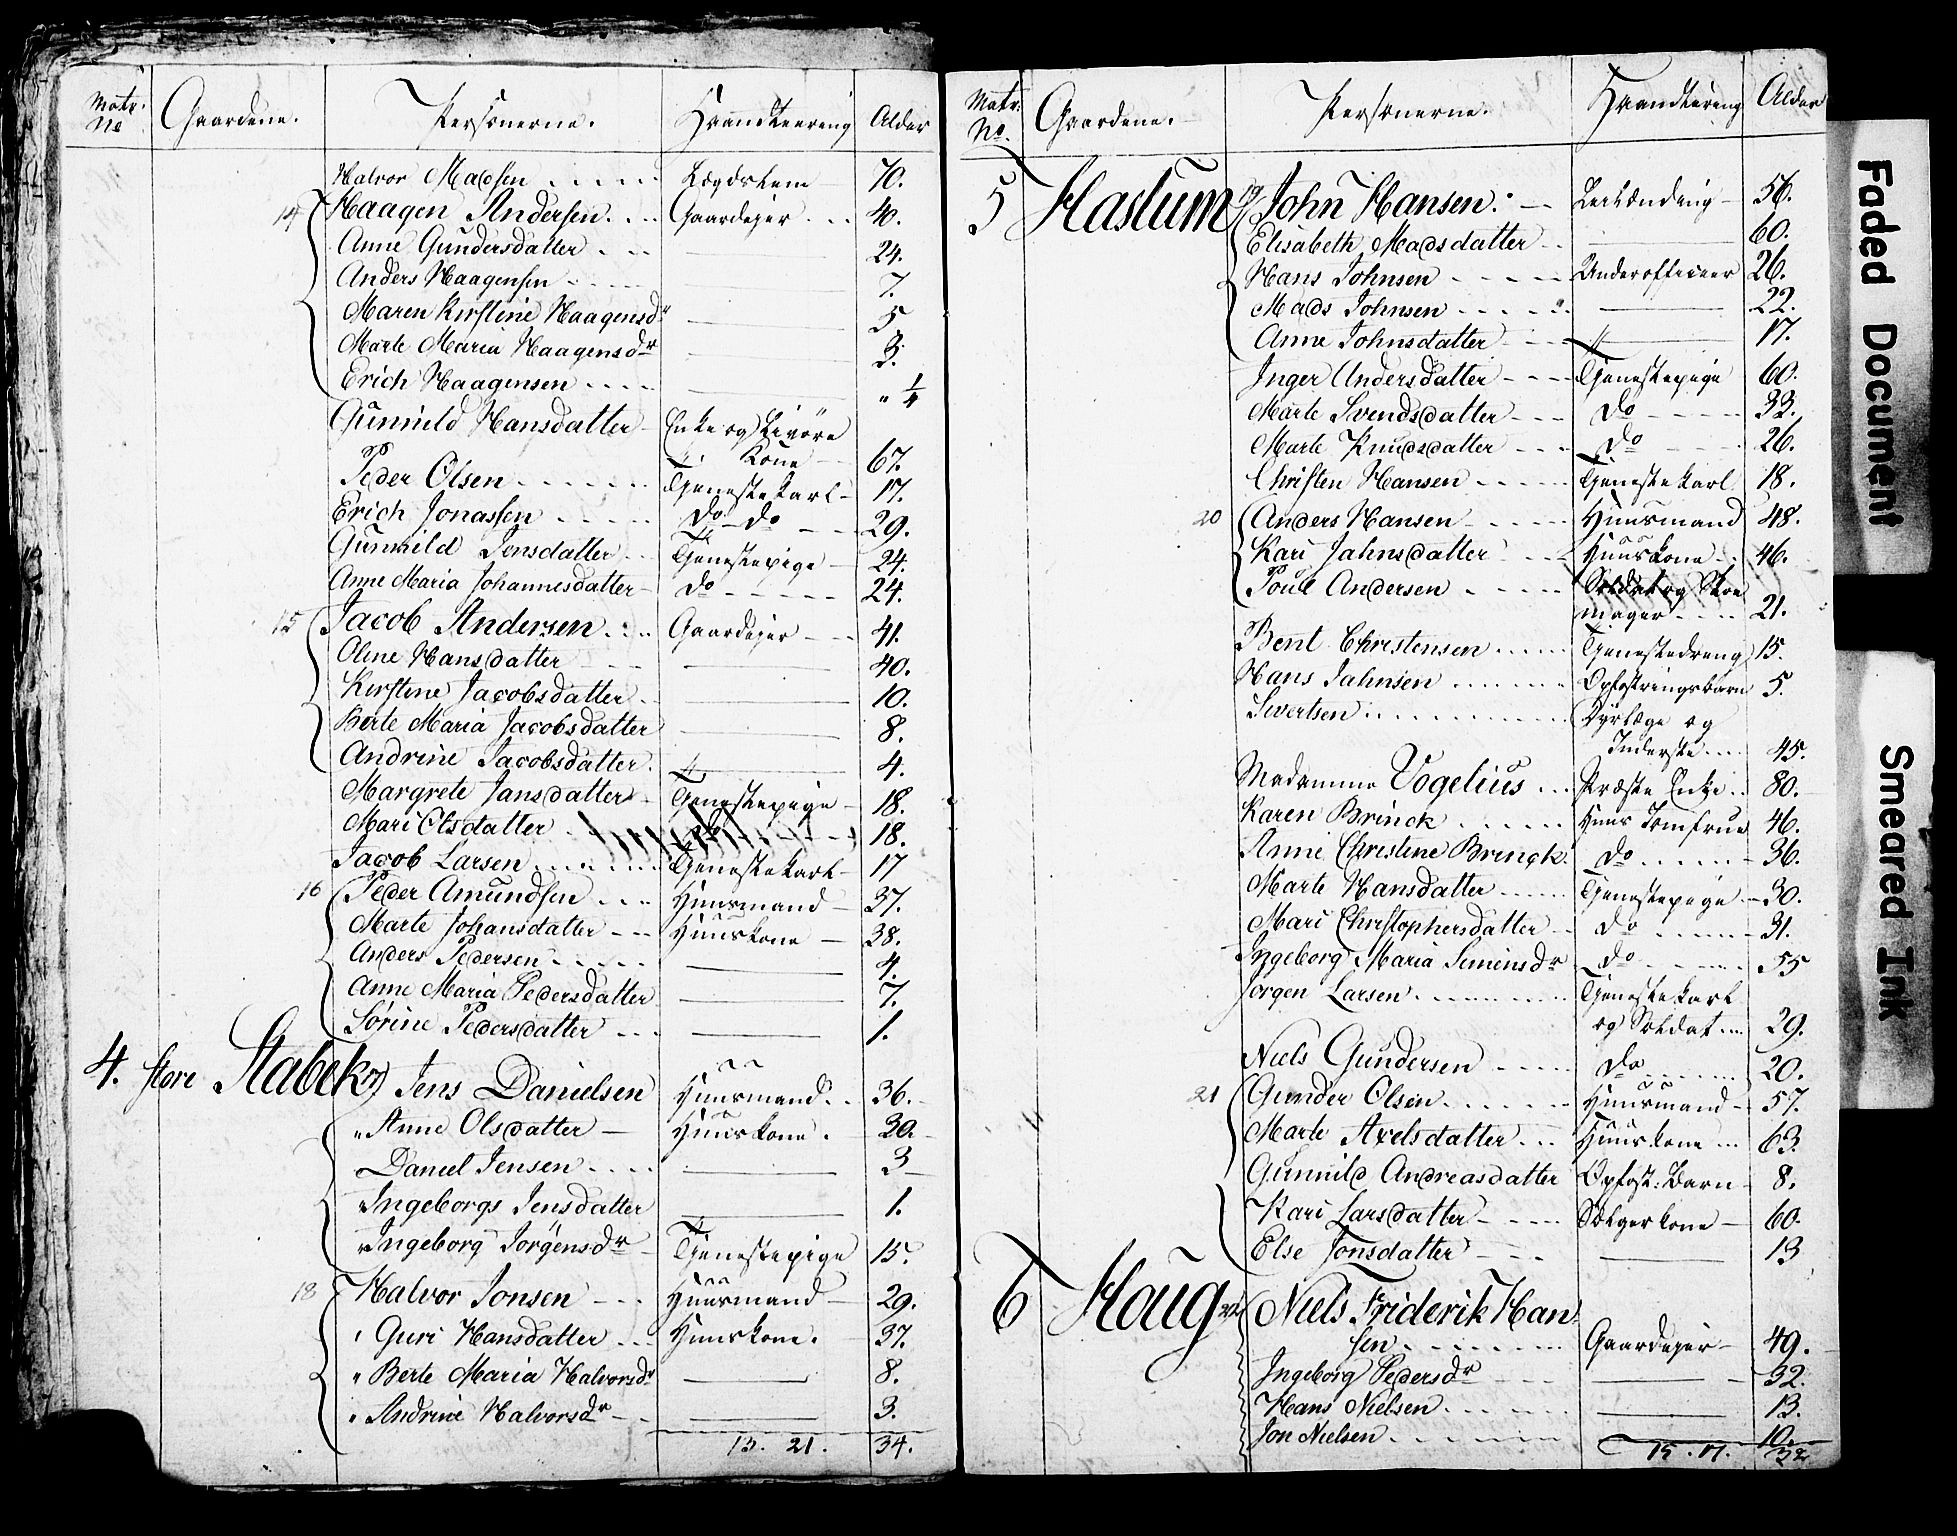 Matr. No Gaardene. Personerne. Haandteering Alder
Halvor Madssen Lægdslem 70.
14 Haagen Anderssen Gaardejer 40.
Anne Gundersdatter 24.
Anders Haagenssen 7.
Maren Kirstine Haagensdr 5
Marte Maria Haagensdr 3.
Erich Haagensen " 1/4
Gunnild Hansdatter Enke og Livøre
Kone 67.
Peder Olsen Tjenestekarl 17.
Erich Jonassen do do 29.
Gunnild Jensdatter Tjenestepige 24.
Anne Maria Johannesdatter do 24.
15 Jacob Andersen Gaardejer 41.
Oline Hansdatter 40.
Kirstine Jacobsdatter 10.
Berte Maria Jacobsdatter 8.
Andrine Jacobsdatter 4.
Margrete Jansdatter Tjenestepige 18.
Mari Olsdatter 18.
Jacob Larsen Tjenestekarl 17
16 Peder Amundsen Huusmand 37.
Marte Johansdatter Huuskone 38.
Anders Pedersen 4.
Anne Maria Pedersdatter 7.
Sørine Pedersdatter 1.
4. store Stabek 17 Jens Danielsen Huusmand 36.
" Anne Olsdatter Huuskone 30.
Daniel Jensen 3
" Ingeborgs Jensdatter 1.
" Ingeborg Jörgensdr Tjenestepige 15.
18 Halvor Jonsen Huusmand 29.
" Guri Hansdatter Huuskone 37.
" Berte Maria Halvorsdr 8.
" Andrine Halvorsdr 3.
13. 21. 34.
Matr. No. Gaardene. Personerne. Haandtering Alder
5 Haslum 19 John Hansen Leilænding 56.
Elisabeth Madsdatter 60.
Hans Johnsen Underofficeer 26.
Mads Johnsen 22.
Anne Johnsdatter 17.
Inger Andersdatter Tjenestepige 60.
Marte Svendsdatter do 33.
Marte Knudsdatter do 26.
Christen Hansen Tjenestekarl 18.
20 Anders Hansen Huusmand 48.
Kari Jahnsdatter Huuskone 46.
Poul Andersen Soldat og Skoe
mager 21.
Bent Christensen Tjenestedreng 15.
Hans Jahnsen Opfostringsbarn 5.
Sivertsen Dyrlæge og
Inderste 45.
Madamme Vogelius Præste Enke 80.
Karen Brinck Huus Jomfrue 46.
Anne Christine Brinck do 36.
Marte Hansdatter Tjenestepige 30.
Mari Christophersdatter do 31.
Ingeborg Maria Simensdr do 55
Jørgen Larsen Tjenestekarl
og Soldat 29.
Niels Gundersen do 20.
21 Gunder Olsen Huusmand 57.
Marte Axelsdatter Huuskone 63.
Gunnild Andreasdatter Opfost: Barn 8.
Kari Larsdatter Sælgerkone 60.
Else Jonsdatter 13
6 Haug 22 Niels Friderik Han
sen Gaardejer 49.
Ingeborg Pedersdr 32.
Hans Nielsen 13.
Jon Nielsen 10.
15. 17. 32
Faded Document
Smeared Ink